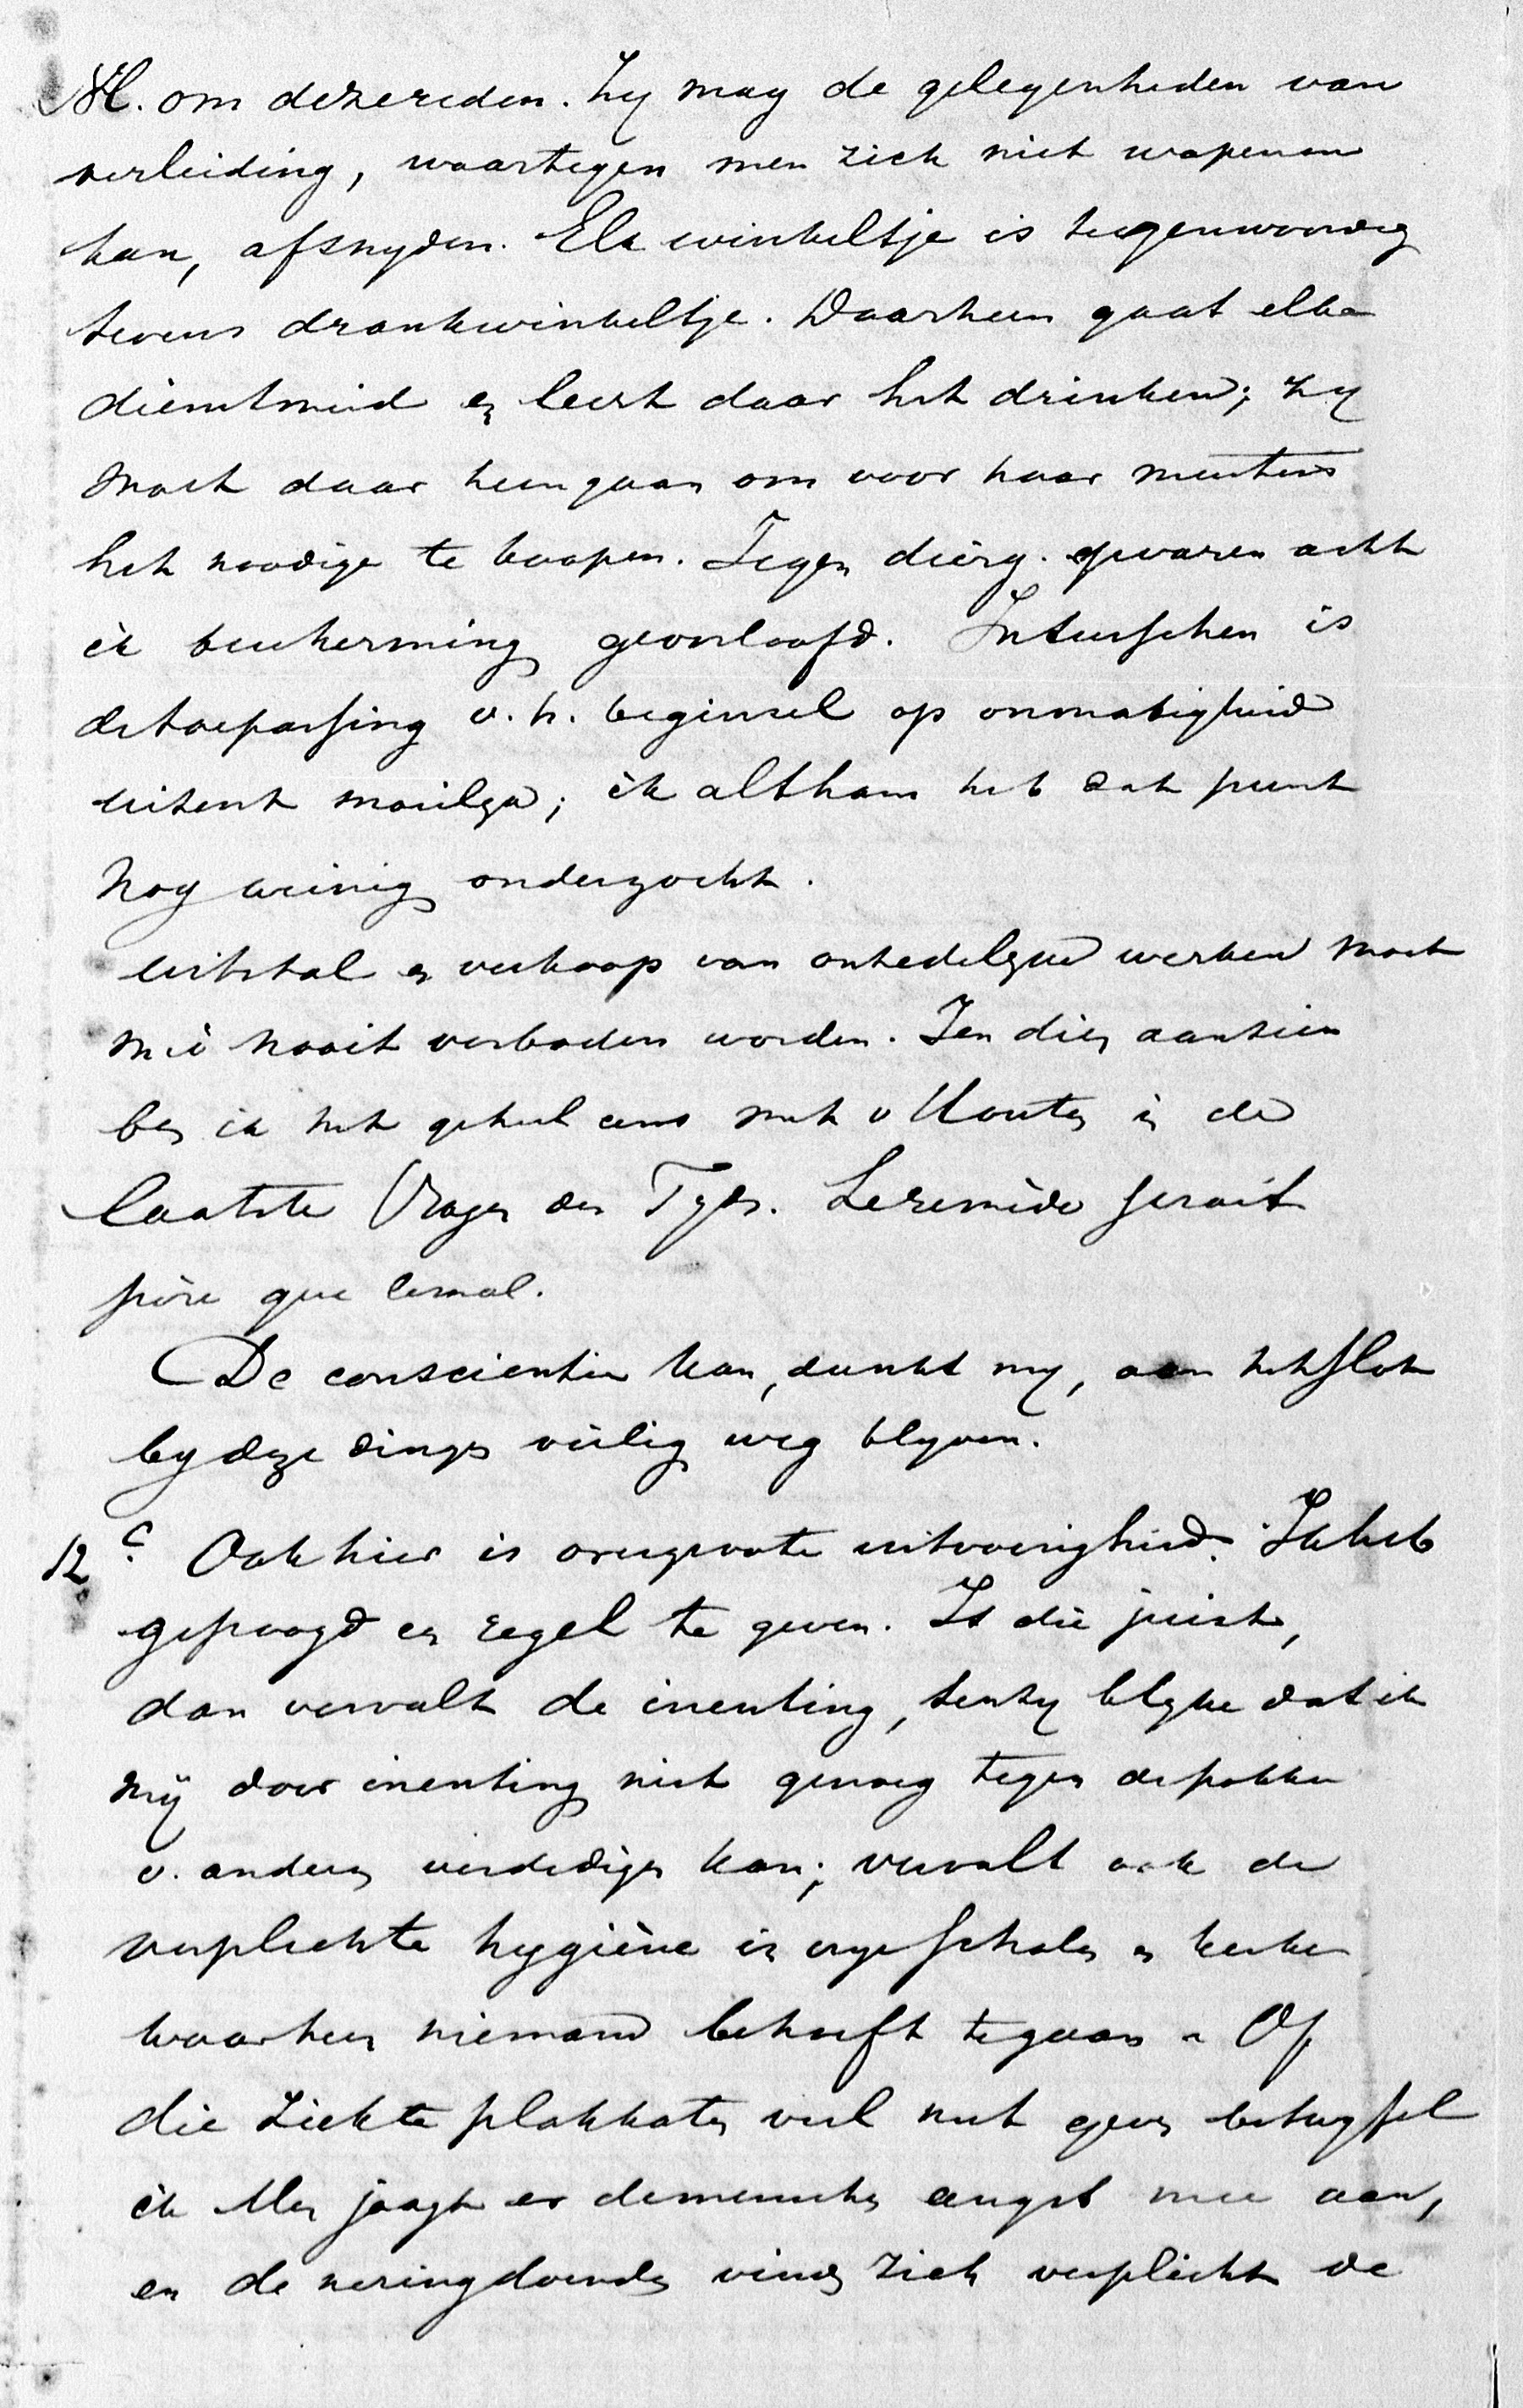 Nl. om deze reden. Zy mag de gelegenheden van
verleiding, waartegen men zich niet wapenen
kan, afsnyden. Elk winkeltje is tegenwoordig
tevens drankwinkeltje. Daarheen gaat elke
dienstmeid en leert daar het drinken; zy
moet daar heengaan om voor haar meesters
het noodige te koopen. Tegen dierg. gevaren acht
ik bescherming geoorloofd. Intusschen is
de toepassing v. h. beginsel op onmatigheid
uiterst moeilyk; ik althans heb dat punt
nog weinig onderzocht.
Uitstal en verkoop van onzedelyke werken moet
m.i. nooit verboden worden. Ten dien aanzien
ben ik het geheel eens met v Houten in de
laatste Vragen des Tyds. Le remède serait
pire que le mal.
De conscientie kan, dunkt my, aan het slot
by deze dingen veilig weg blyven.
12 c. Ook hier is overgroote uitvoerigheid. Ik heb
gepoogd een regel te geven. Is die juist,
dan vervalt de inenting, tenzy blyke dat ik
mij door inenting niet genoeg tegen de pokken
v. anderen verdedigen kan; vervalt ook de
verplichte hygiène in enge scholen en kerken
waarheen niemand behoeft te gaan. Of
die ziekte plakkaten veel nut geven betwyfel
ik Men jaagt er de menschen angst mee aan,
en de neringdoende vindt zich verplicht de